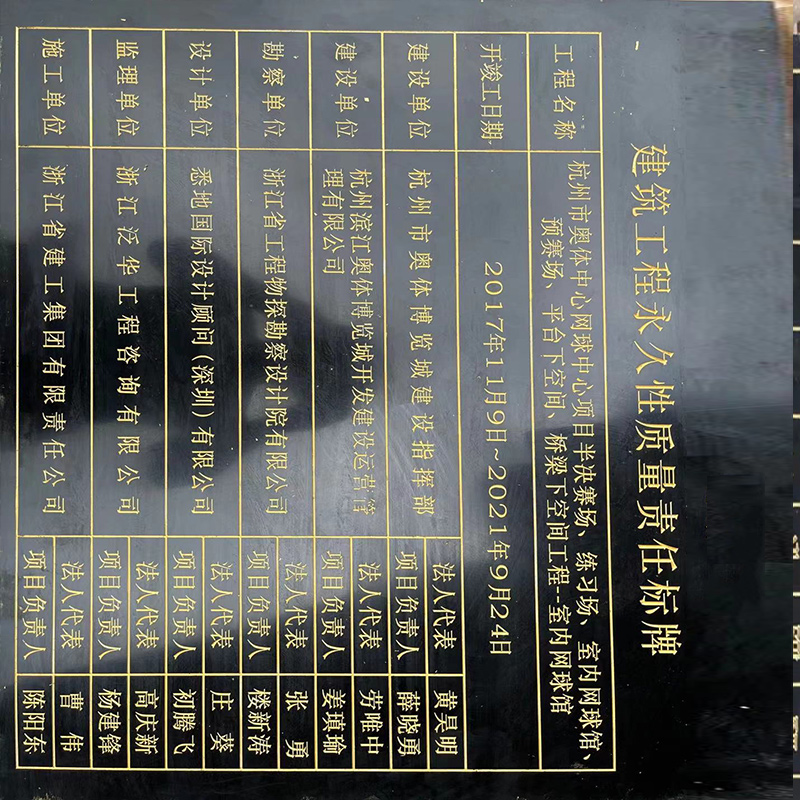 建筑工程永久性质量责任标牌
工程名称
杭州市奥体中心网球中心项目半决赛场、练习场、室内网球馆、
预赛场、平台下空间、桥梁下空间工程--室内网球馆
开竣工日期
2017年11月9日~2021年9月24日
建设单位
杭州市奥体博览城建设指挥部
法人代表
黄昊明
项目负责人
薛晓勇
建设单位
杭州滨江奥体博览城开发建设运营管
理有限公司
法人代表
劳唯中
项目负责人
姜琪瑜
勘察单位
浙江省工程物探勘察设计院有限公司
法人代表
张勇
项目负责人
楼新涛
设计单位
悉地国际设计顾问(深圳)有限公司
法人代表
庄葵
项目负责人
初腾飞
监理单位
浙江泛华工程咨询有限公司
法人代表
高庆新
项目负责人
杨建锋
施工单位
浙江省建工集团有限责任公司
法人代表
曹伟
项目负责人
陈阳东